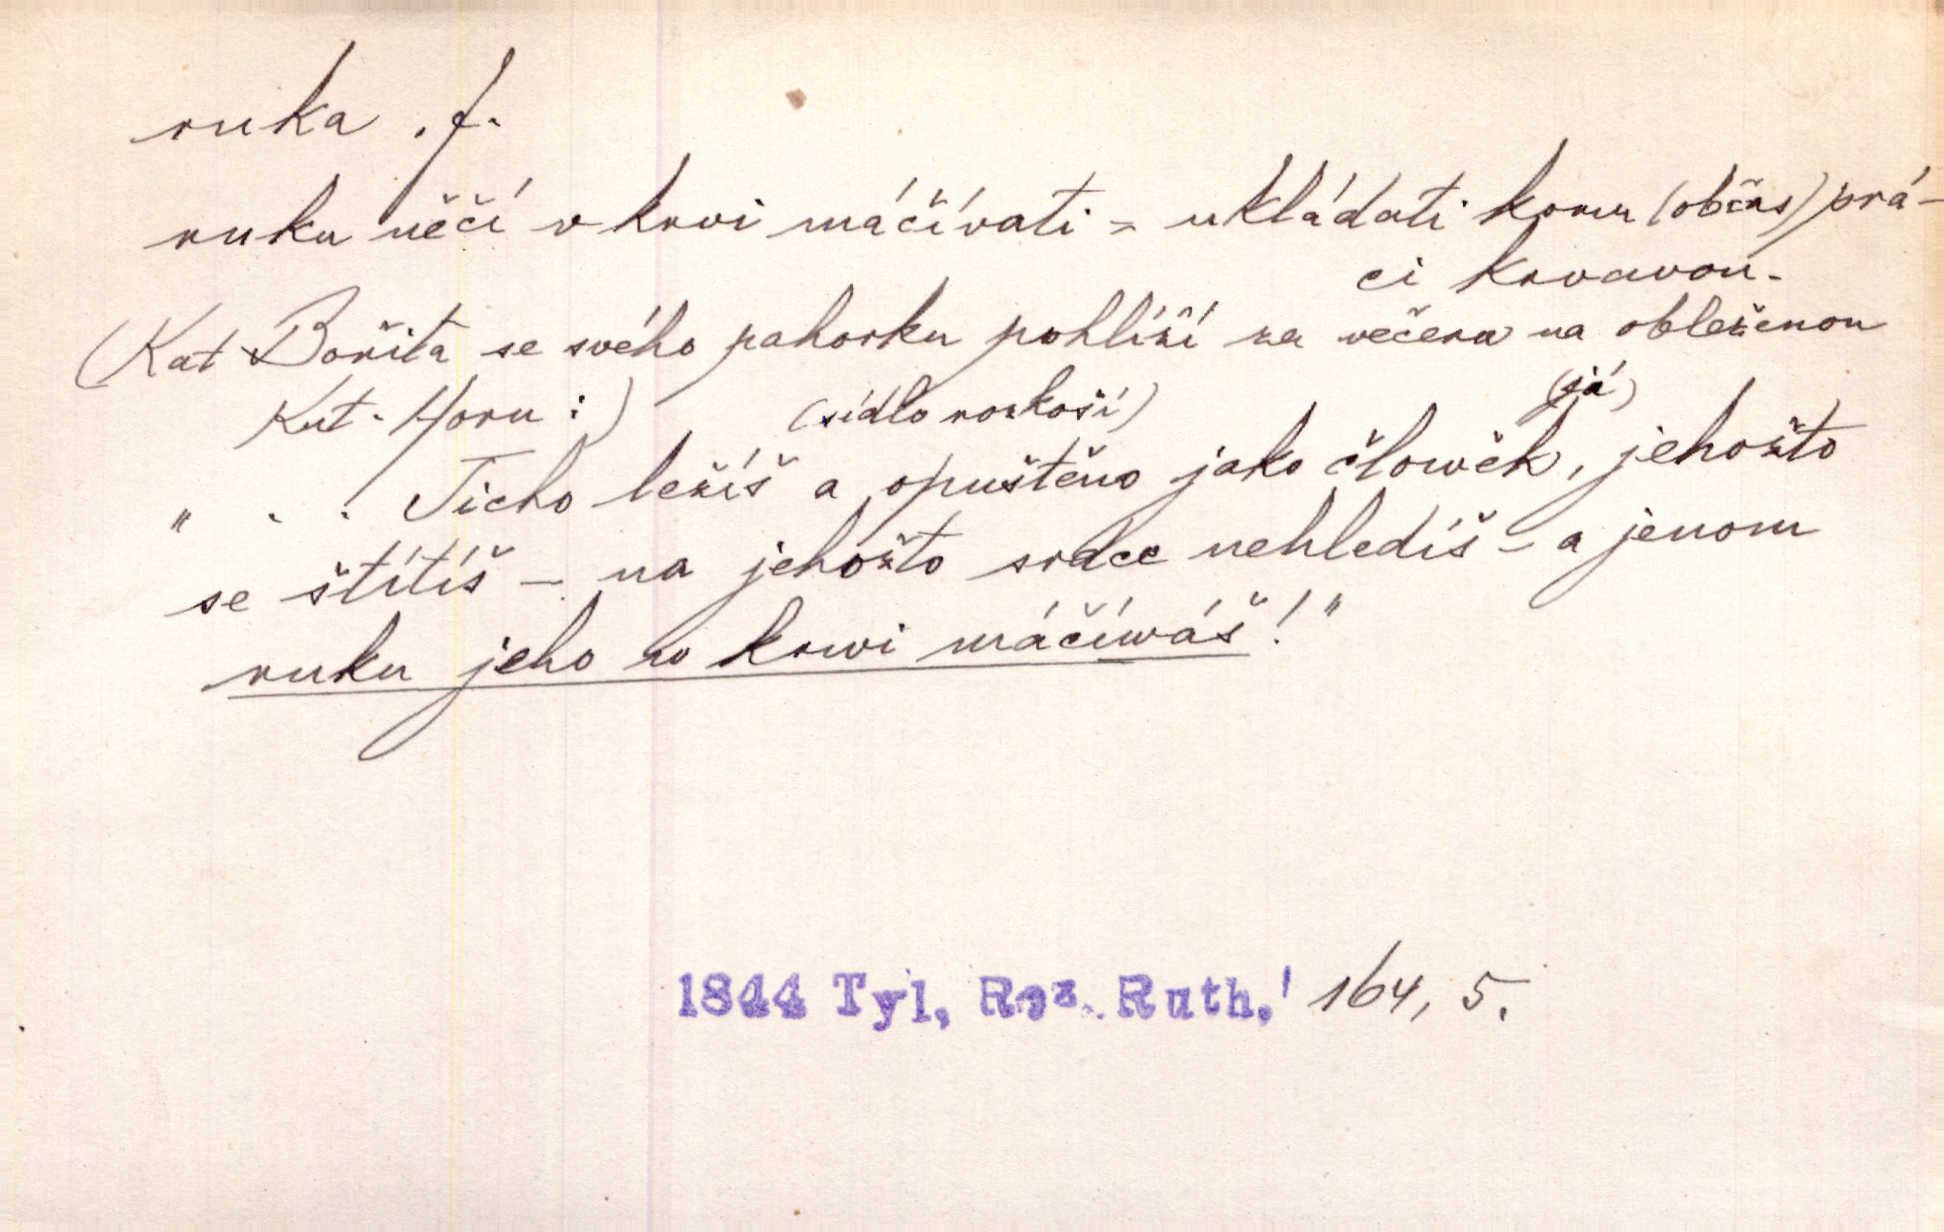 ruka . f.
ruku něčí v krvi máčívati = ukládati komu (občas) prá-
ci krvavou.
(Kat Bořita se svého pahorku pohlíží za večera na obleženou
Kut. Horu :) (sídlo rozkoší) (já)
" . . Ticho ležíš a opuštěno jako člowěk, jehožto
se štítíš – na jehožto srdce nehledíš – a jenom
ruku jeho w krwi máčíwáš!"
1844 Tyl, Roz. Ruth,' 164, 5.